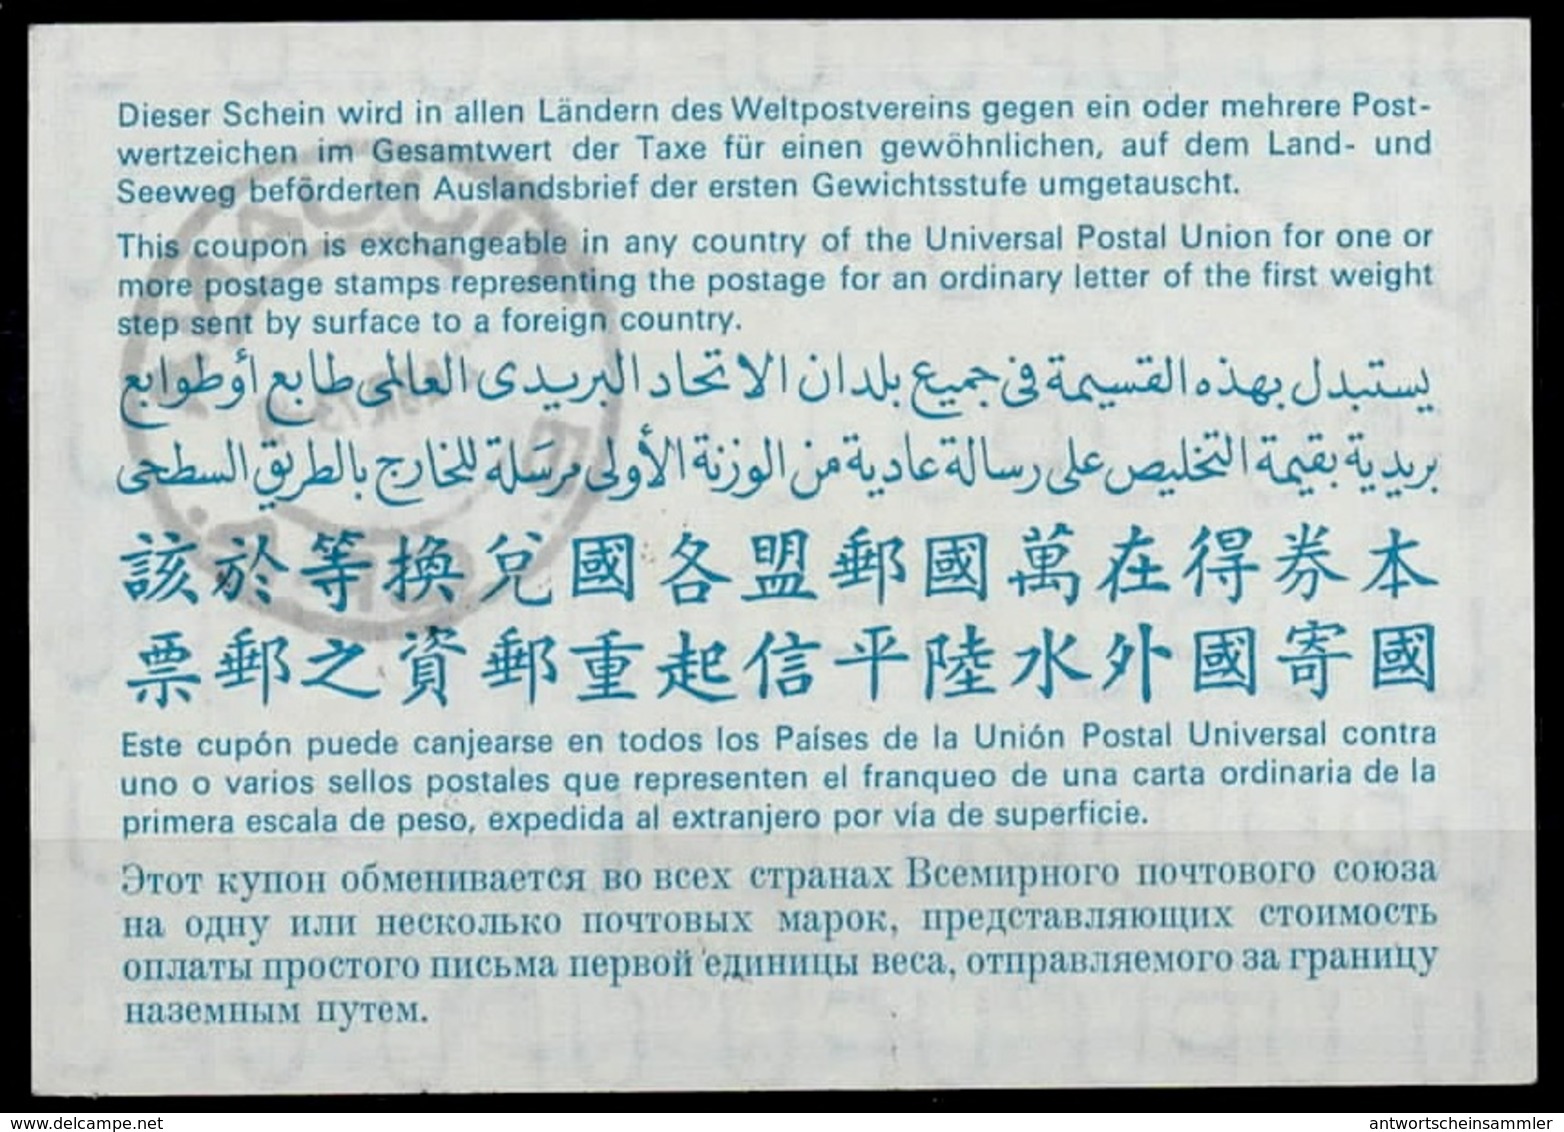 Dieser Schein wird in allen Ländern des Weltpostvereins gegen ein oder mehrere Post-
wertzeichen im Gesamtwert der Taxe für einen gewöhnlichen, auf dem Land- und
Seeweg beförderten Auslandsbrief der ersten Gewichtsstufe umgetauscht.
This coupon is exchangeable in any country of the Universal Postal Union for one or
more postage stamps representing the postage for an ordinary letter of the first weight
step sent by surface to a foreign country.
يستبدل بهذه القسيمة فى جميع بلدان الاتحاد البريدى العالمى طابع أو طوابع
بريدية بقيمة التخليص على رسالة عادية من الوزنة الأولى مرسَلة للخارج بالطريق السطحى
本券得在萬國郵盟各國兌換等於該
國寄國外水陸平信起重郵資之郵票
Este cupón puede canjearse en todos los Países de la Unión Postal Universal contra
uno o varios sellos postales que representen el franqueo de una carta ordinaria de la
primera escala de peso, expedida al extranjero por vía de superficie.
Этот купон обменивается во всех странах Всемирного почтового союза
на одну или несколько почтовых марок, представляющих стоимость
оплаты простого письма первой единицы веса, отправляемого за границу
наземным путем.
delcampe.net
antwortscheinsammler